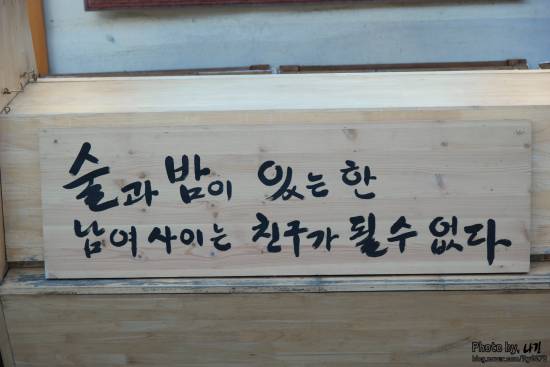 술과 밤이 있는 한
남여 사이는 친구가 될 수 없다
Photo by. 나기